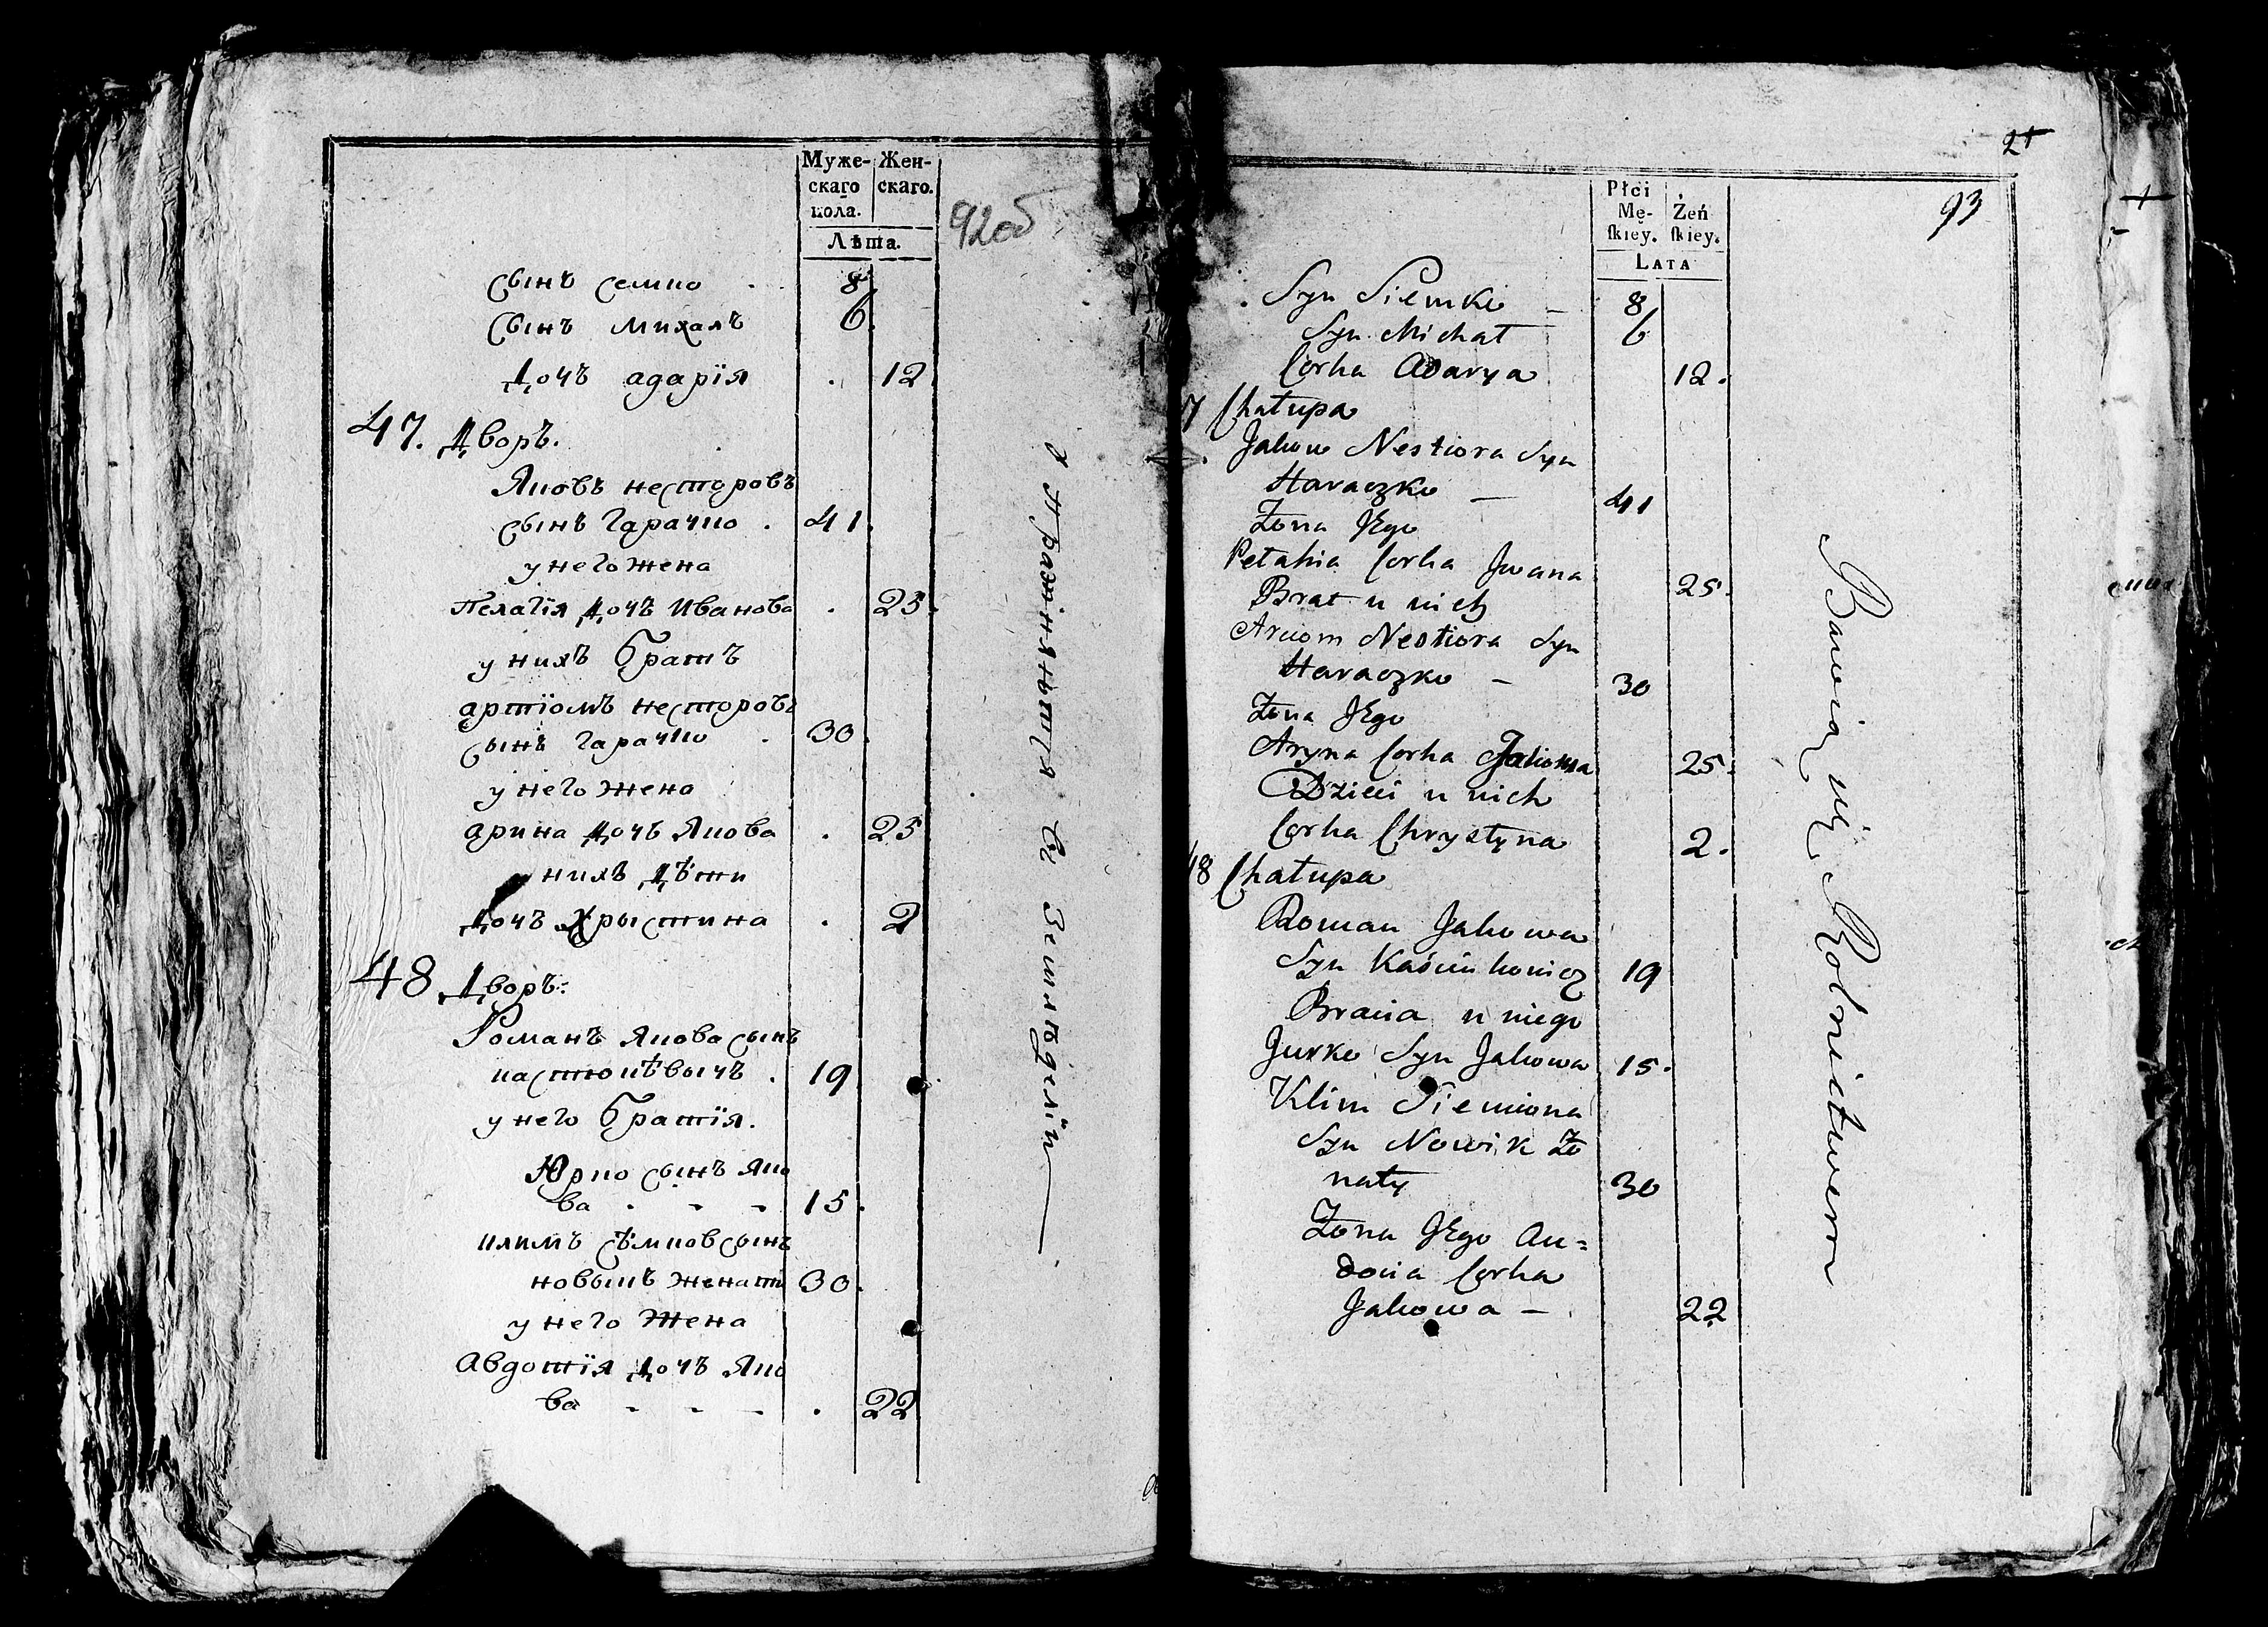 Муже-
скаго
пола.
Жен-
скаго.
Лѣта.
92об
сынъ семко 8
сынъ михалъ 6
дочъ адарія 12
47. Дворъ.
Яковъ несторовъ
сынъ гарачко 41
у него жена
Пелагія дочъ иванова 25
у нихъ братъ
артіомъ несторовъ
сынъ гарачко 30
у него жена
арина дочъ Якова 25
у нихъ дѣти
дочъ Хрыстина 2
48 Дворъ:
Романъ Якова сынъ
кастюкѣвычъ 19
у него братія.
Юрко сынъ Яко
ва - - - 15
климъ сѣмков сынъ
новыкъ женат 30
у него жена
Авдотія дочъ Яко
ва - - - 22
Упражняются въ Земледѣліи
21
93
Płci
Mę-
skiey.
Żeń
skiey.
LATA
Syn Siemko – 8
Syn Michał 6
Corka Adarya 12.
7 Chałupa
Jakow Nestiora Syn
Haraczko – 41
Żona Jego
Pełahia Corka Jwana 25.
Brat u nich
Arciom Nestiora Syn
Haraczko – 30
Żona Jego
Aryna Corka Jakowa 25.
Dzieci u nich
Corka Chrystyna 2.
48 Chałupa
Roman Jakowa
Syn Kaściukowicz 19
Bracia u niego
Jurko Syn Jakowa 15.
Klim Siemiona
Syn Nowik Żo
naty 30
Żona Jego Au=
docia Corka
Jakowa – 22
Bawią się Rolnictwem